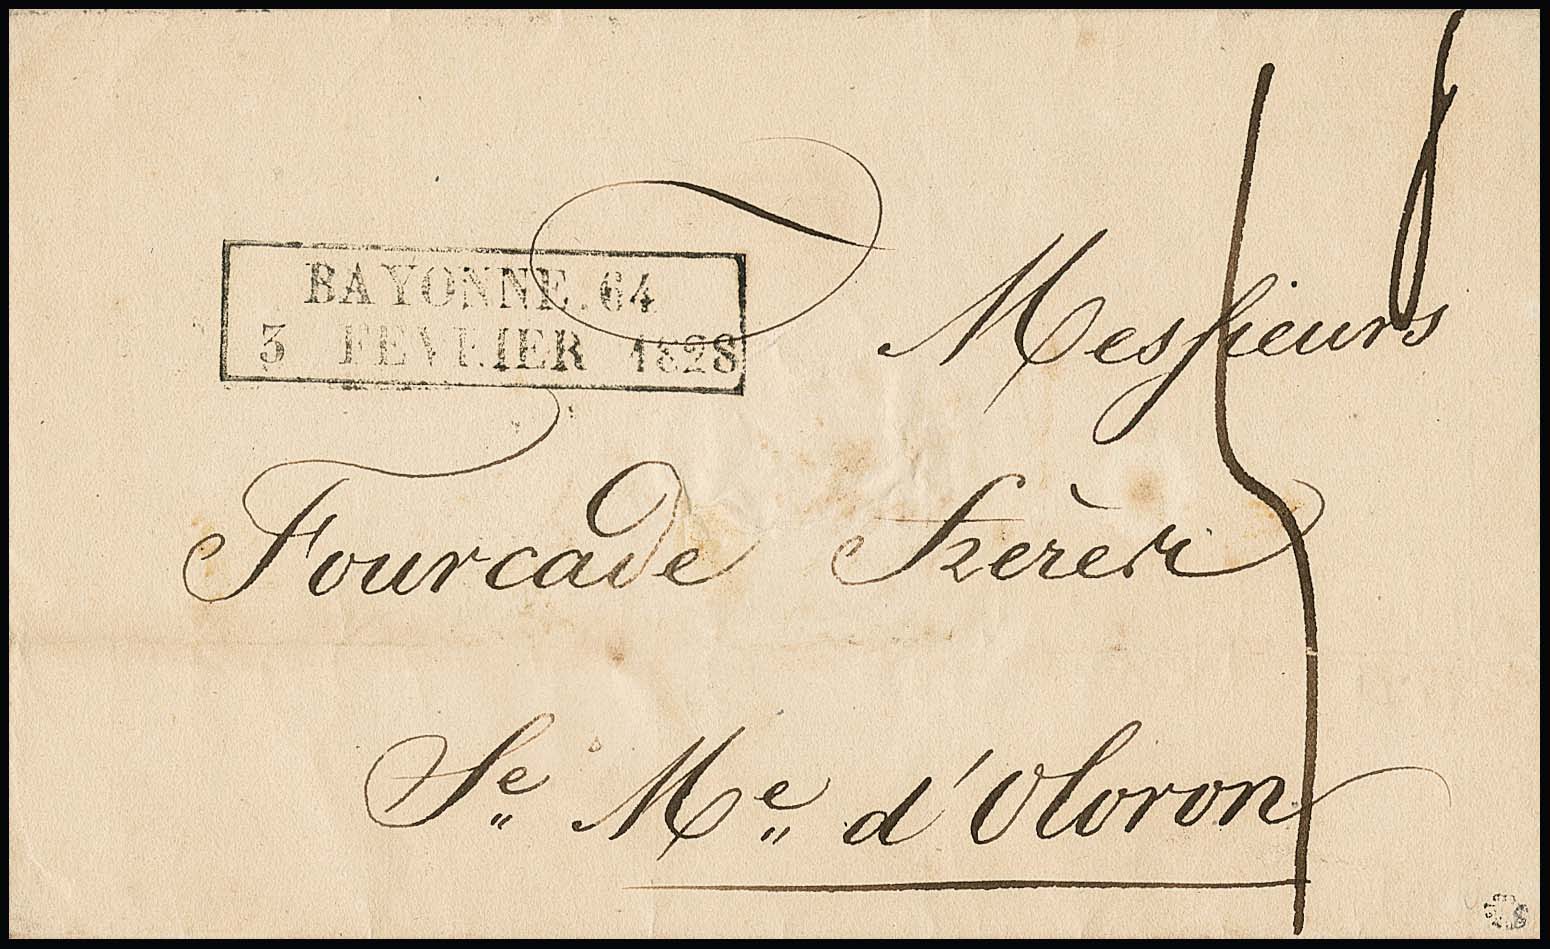 BAYONNE.64
3 FEVRIER 1828
Messieurs
Fourcade Frères
Se. Me. d'Oloron